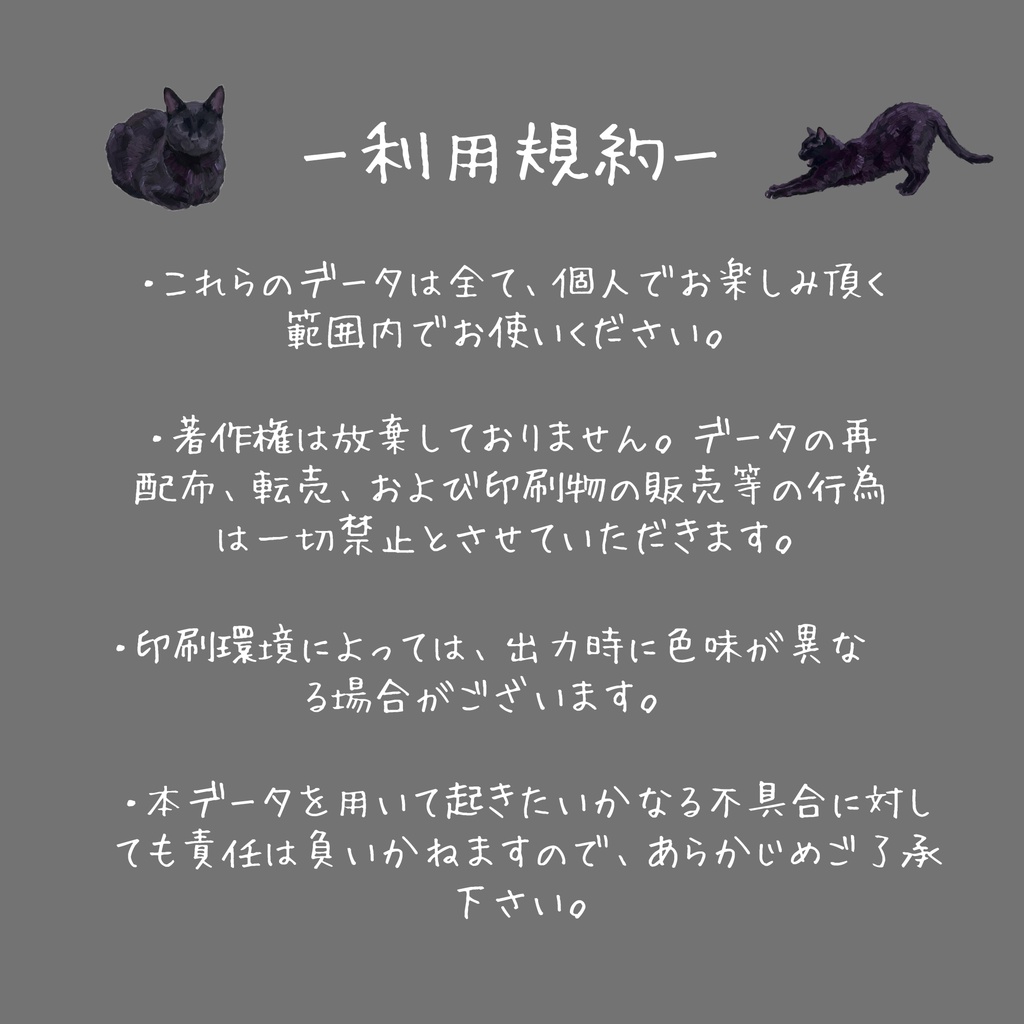 ー利用規約ー
・これらのデータは全て、個人でお楽しみ頂く
範囲内でお使いください。
・著作権は放棄しておりません。データの再
配布、転売、および印刷物の販売等の行為
は一切禁止とさせていただきます。
・印刷環境によっては、出力時に色味が異な
る場合がございます。
・本データを用いて起きたいかなる不具合に対し
ても責任は負いかねますので、あらかじめご了承
下さい。